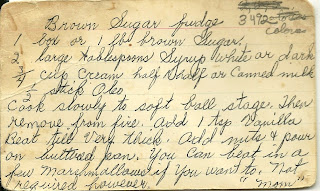 Brown Sugar fudge
3492
Colora
1 box or 1 lb. brown Sugar.
2 large tablespoons Syrup white or dark
3/4 cup Cream half & half or Canned milk
1/2 stick Oleo
Cook slowly to soft ball stage. Then
remove from fire. Add 1 tsp Vanilla
Beat till Very thick. Add nuts & pour
on buttered pan. You Can beat in a
few Marshmallows if You want to. Not
required however. "Mom"